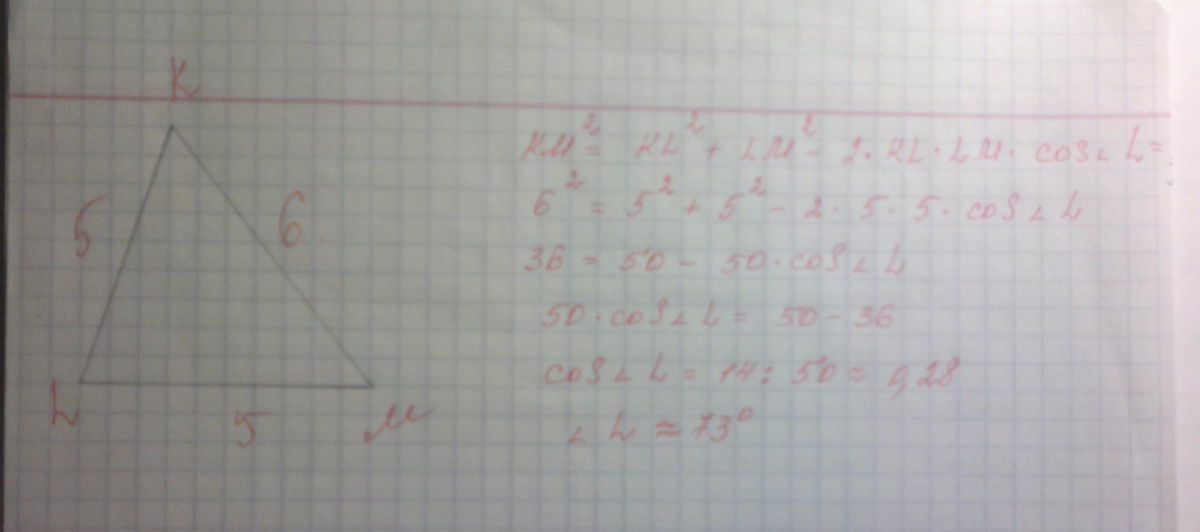 K
5
6
L
5
M
KM² = KL² + LM² - 2·KL·LM·cos∠L =
6² = 5² + 5² - 2·5·5·cos∠L
36 = 50 - 50·cos∠L
50·cos∠L = 50 - 36
cos∠L = 14 : 50 ≈ 0,28
∠L ≈ 73°